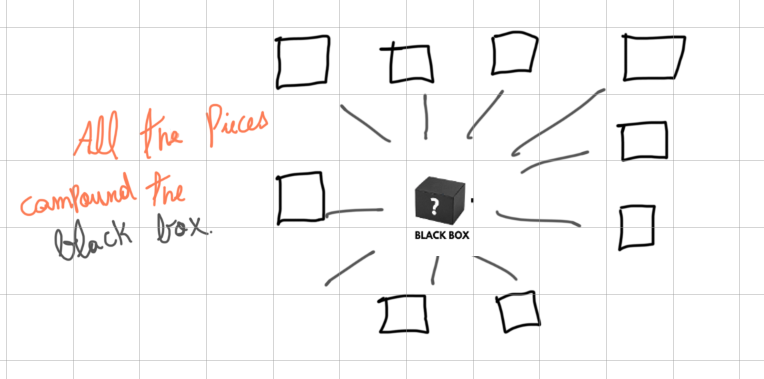 All the Pieces
compound the
black box.
?
BLACK BOX